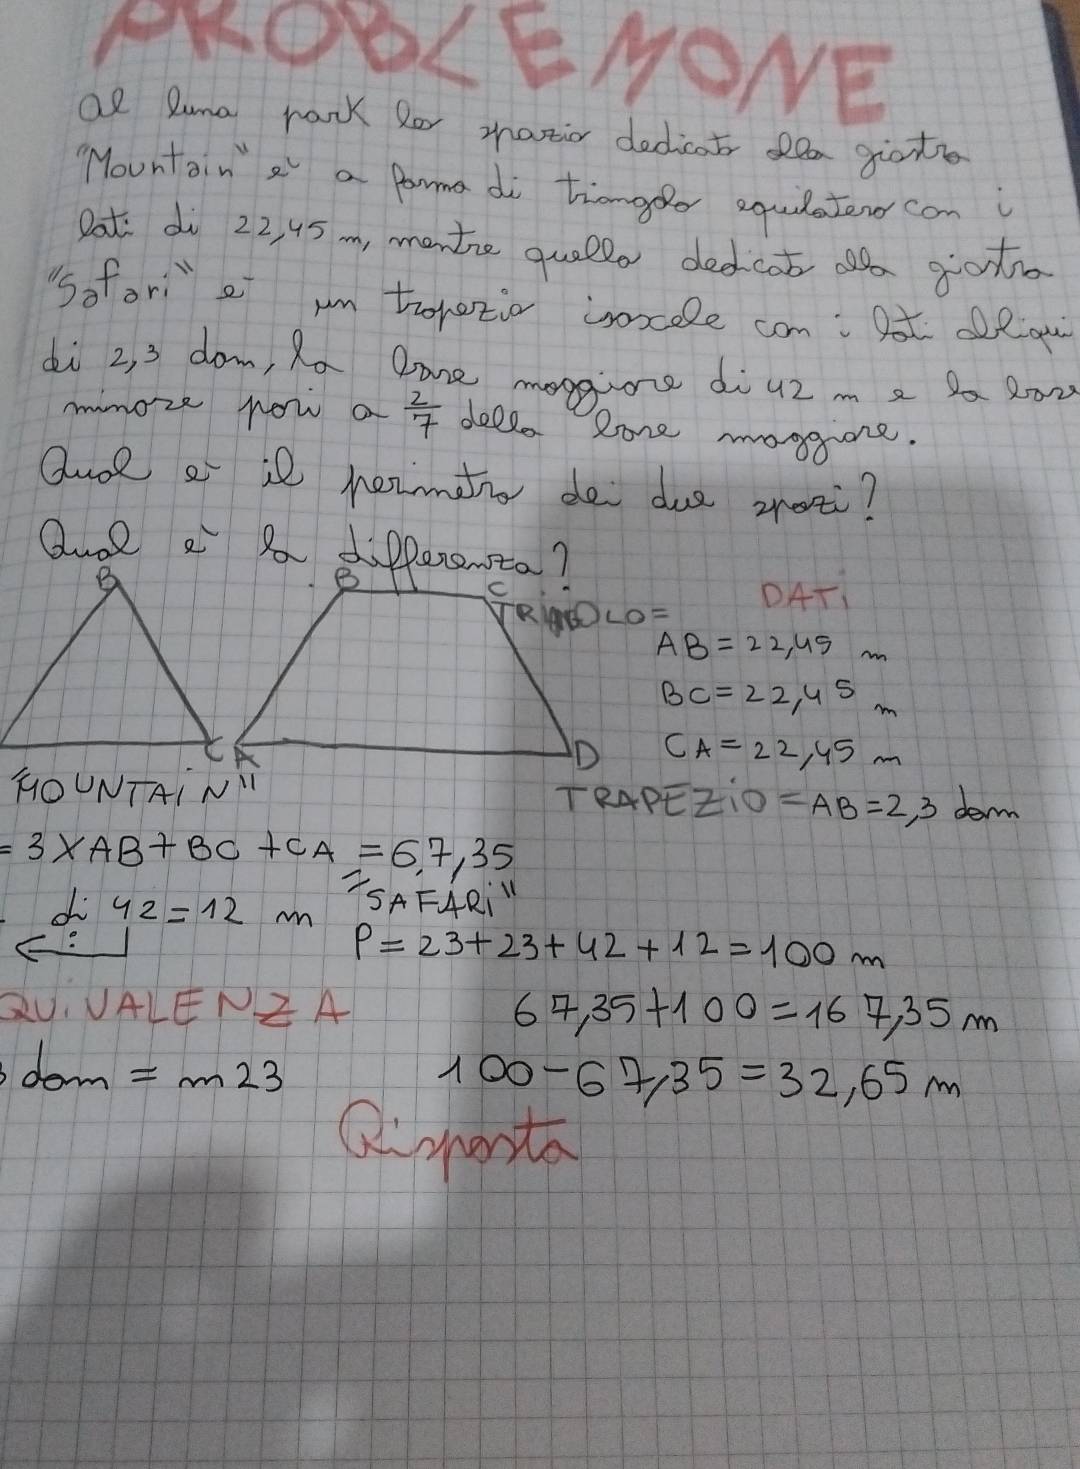 PROBLEMONE
Al luna park lo spazio dedicato alla giostra
"Mountain" è a forma di triangolo equilatero con i
lati di 22,45 m, mentre quello dedicato alla giostra
"Safari" è un trapezio isoscele con i lati obliqui
di 2,3 dam, la base maggiore di 42 m e la base
minore pari a 2/7 della base maggiore.
Qual è il perimetro dei due spazi?
Qual è la differenza?
B B C
DATI
TRIANGOLO=
AB = 22,45 m
BC = 22,45 m
CA = 22,45 m
C A D
"MOUNTAIN"
TRAPEZIO = AB = 2,3 dam
= 3 X AB + BC + CA = 67,35
di 42 = 12 m
"SAFARI"
P = 23 + 23 + 42 + 12 = 100 m
QUIVALENZA
67,35 + 100 = 167,35 m
3 dam = m 23
100 - 67,35 = 32,65 m
Risposta